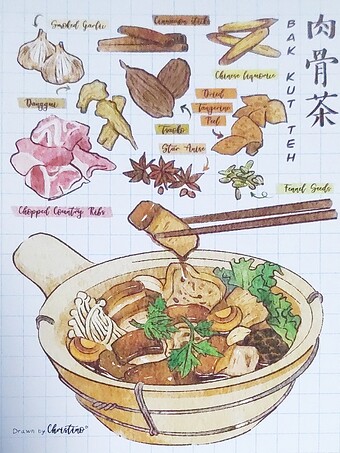 Smoked Garlic
Cinnamon Stick
Chinese Liquorice
肉骨茶
BAK KUT TEH
Danggui
Tsaoko
Dried
Tangerine
Peel
Star Anise
Fennel Seeds
Chopped Country Ribs
Drawn by Christine®